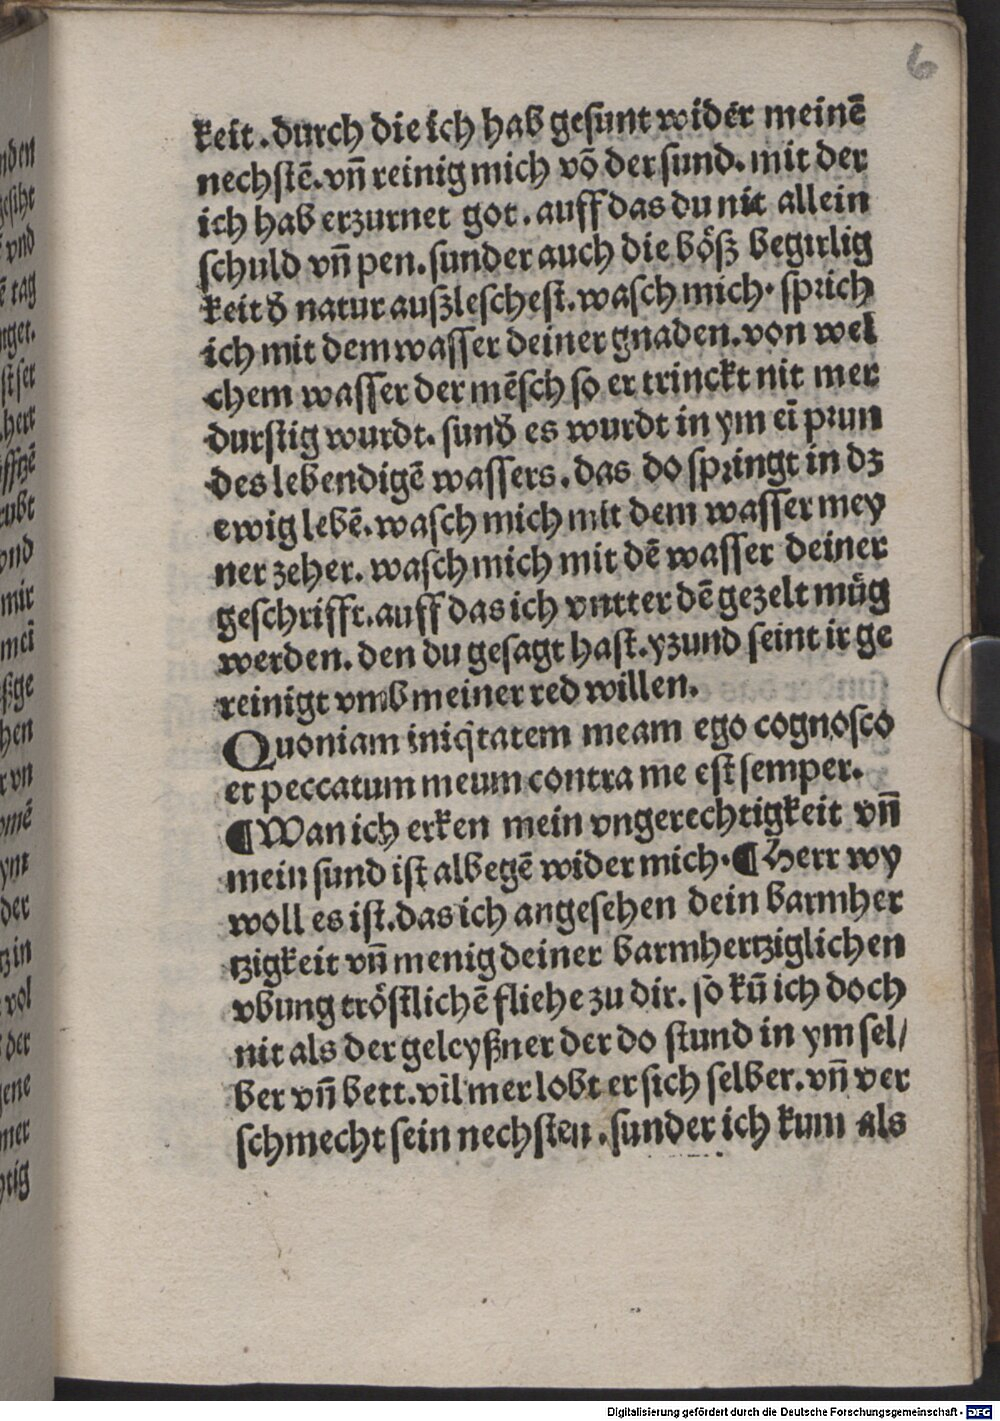 6
keit. durch die ich hab gesunt wider meinē
nechstē. vn̄ reinig mich vō der sund. mit der
ich hab erzurnet got. auff das du nit allein
schuld vn̄ pen. sunder auch die böß begirlig
keit d̄ natur außleschest. wasch mich. sprich
ich mit dem wasser deiner gnaden. von wel
chem wasser der mēsch so er trinckt nit mer
durstig wurdt. sund̄ es wurdt in ym eī prun
des lebendigē wassers. das do springt in dz
ewig lebē. wasch mich mit dem wasser mey
ner zeher. wasch mich mit dē wasser deiner
geschrifft. auff das ich vntter dē gezelt müg
werden. den du gesagt hast. yzund seint ir ge
reinigt vmb meiner red willen.
Quoniam iniq̄tatem meam ego cognosco
et peccatum meum contra me est semper.
¶ Wan ich erken mein vngerechtigkeit vn̄
mein sund ist albegē wider mich. ¶ Herr wy
woll es ist. das ich angesehen dein barmher
tzigkeit vn̄ menig deiner barmhertziglichen
vbung tröstlichē fliehe zu dir. so kū ich doch
nit als der gleyßner der do stund in ym sel/
ber vn̄ bett. vil mer lobt er sich selber. vn̄ ver
schmecht sein nechsten. sunder ich kum als
Digitalisierung gefördert durch die Deutsche Forschungsgemeinschaft - DFG